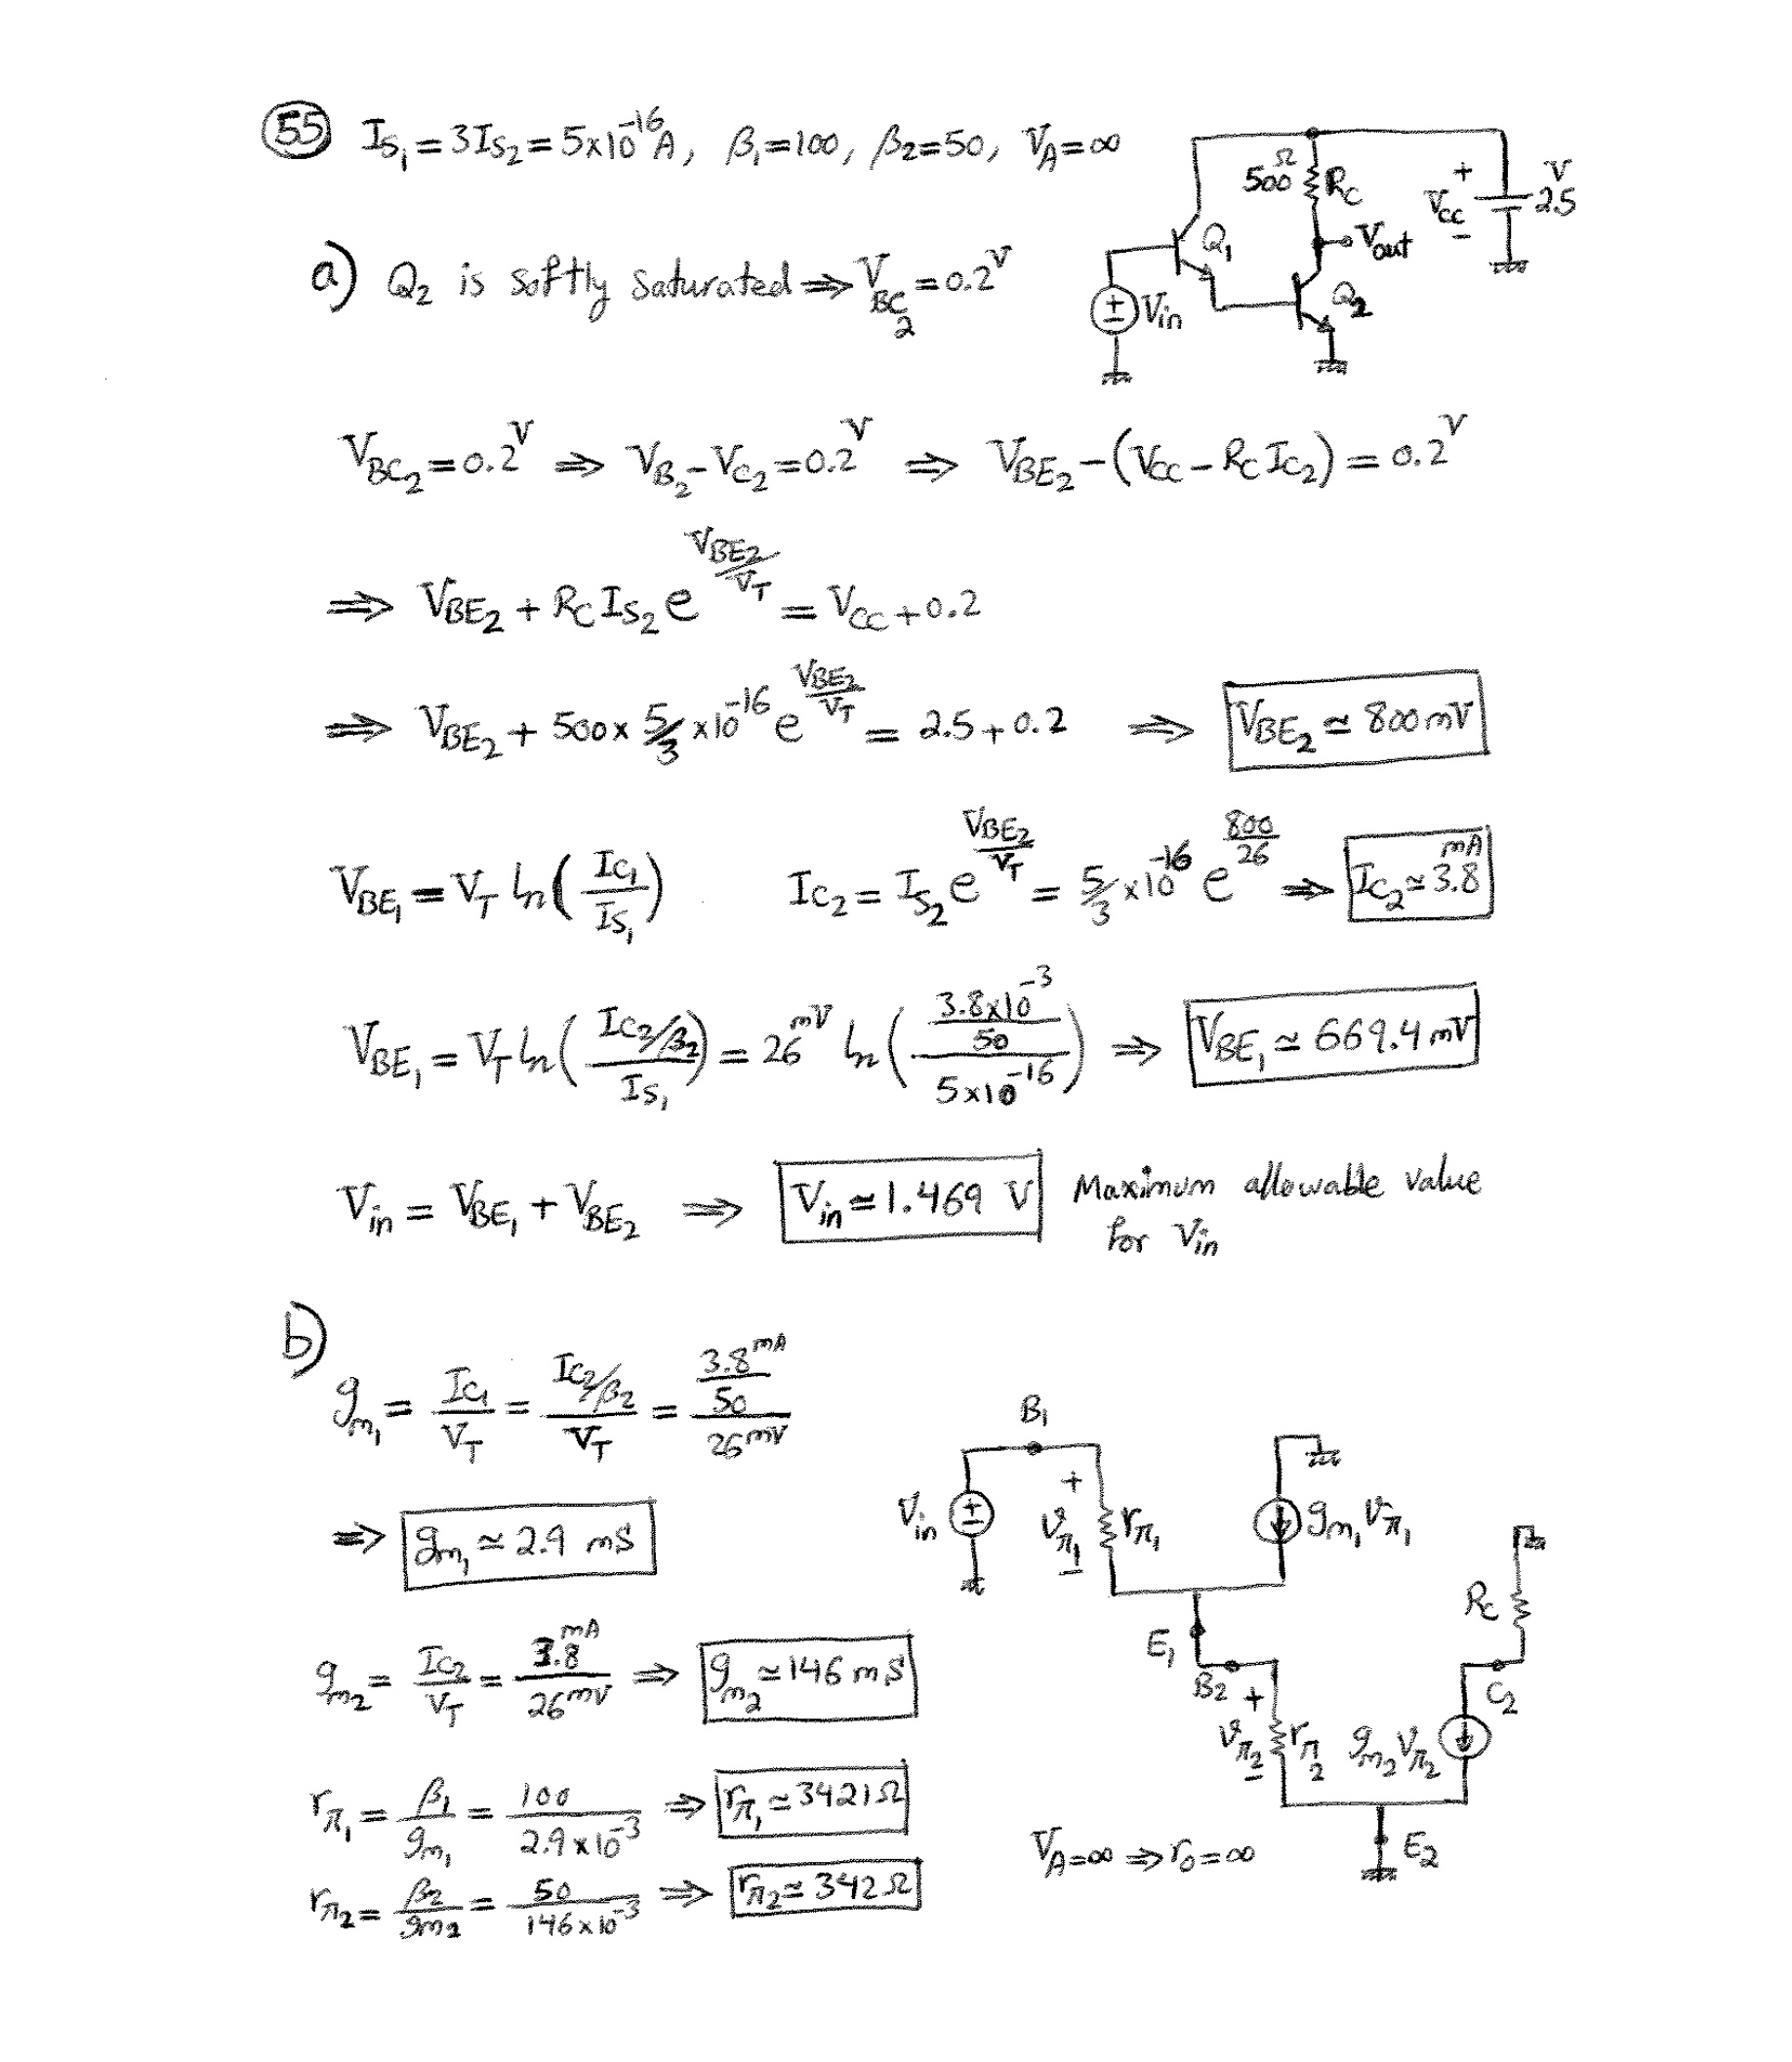 55 I_S1 = 3I_S2 = 5x10^-16 A, β1=100, β2=50, V_A=∞
500 Ω R_C + V_CC - 2.5 V
Q1 Vout
Vin Q2
a) Q2 is softly saturated ⇒ V_BC2 = 0.2^V
V_BC2 = 0.2^V ⇒ V_B2 - V_C2 = 0.2^V ⇒ V_BE2 - (V_CC - R_C I_C2) = 0.2^V
⇒ V_BE2 + R_C I_S2 e^(V_BE2/V_T) = V_CC + 0.2
⇒ V_BE2 + 500 x 5/3 x10^-16 e^(V_BE2/V_T) = 2.5 + 0.2 ⇒ V_BE2 ≃ 800 mV
V_BE1 = V_T ln(I_C1/I_S1) I_C2 = I_S2 e^(V_BE2/V_T) = 5/3 x10^-16 e^(800/26) ⇒ I_C2 ≃ 3.8 mA
V_BE1 = V_T ln((I_C2/β2)/I_S1) = 26^mV ln((3.8x10^-3/50)/(5x10^-16)) ⇒ V_BE1 ≃ 669.4 mV
Vin = V_BE1 + V_BE2 ⇒ Vin ≃ 1.469 V Maximum allowable value
for Vin
b)
g_m1 = I_C1/V_T = (I_C2/β2)/V_T = (3.8^mA/50)/26^mV
⇒ g_m1 ≃ 2.9 mS
g_m2 = I_C2/V_T = 3.8^mA/26^mV ⇒ g_m2 ≃ 146 mS
r_π1 = β1/g_m1 = 100/(2.9x10^-3) ⇒ r_π1 ≃ 3421Ω
r_π2 = β2/g_m2 = 50/(146x10^-3) ⇒ r_π2 ≃ 342 Ω
B1
Vin + v_π1 - r_π1 g_m1 v_π1
E1 R_C
B2 C2
+ v_π2 - r_π2 g_m2 v_π2
V_A=∞ ⇒ r_o=∞ E2